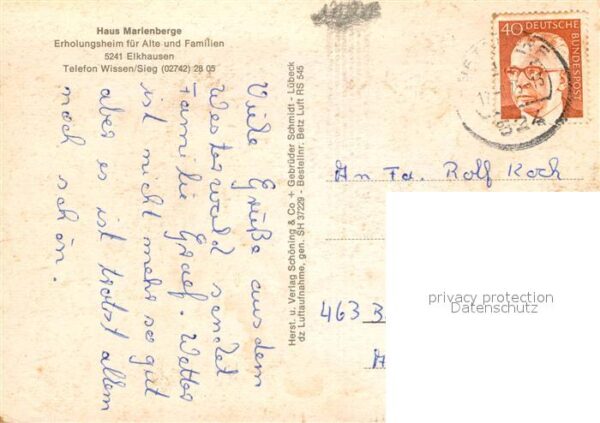 Haus Marienberge
Erholungsheim für Alte und Familien
5241 Elkhausen
Telefon Wissen/Sieg (02742) 28 05
Viele Grüße aus dem
Westerwald sendet
Familie Graef. Wetter
ist nicht mehr so gut
aber es ist trotz allem
noch schön.
Herst. u. Verlag Schöning & Co + Gebrüder Schmidt - Lübeck
dz Luftaufnahme, gen. SH 37229 - Bestellnr. Betz Luft RS 545
40 DEUTSCHE BUNDESPOST
An Fa. Rolf Koch
463 B
privacy protection
Datenschutz